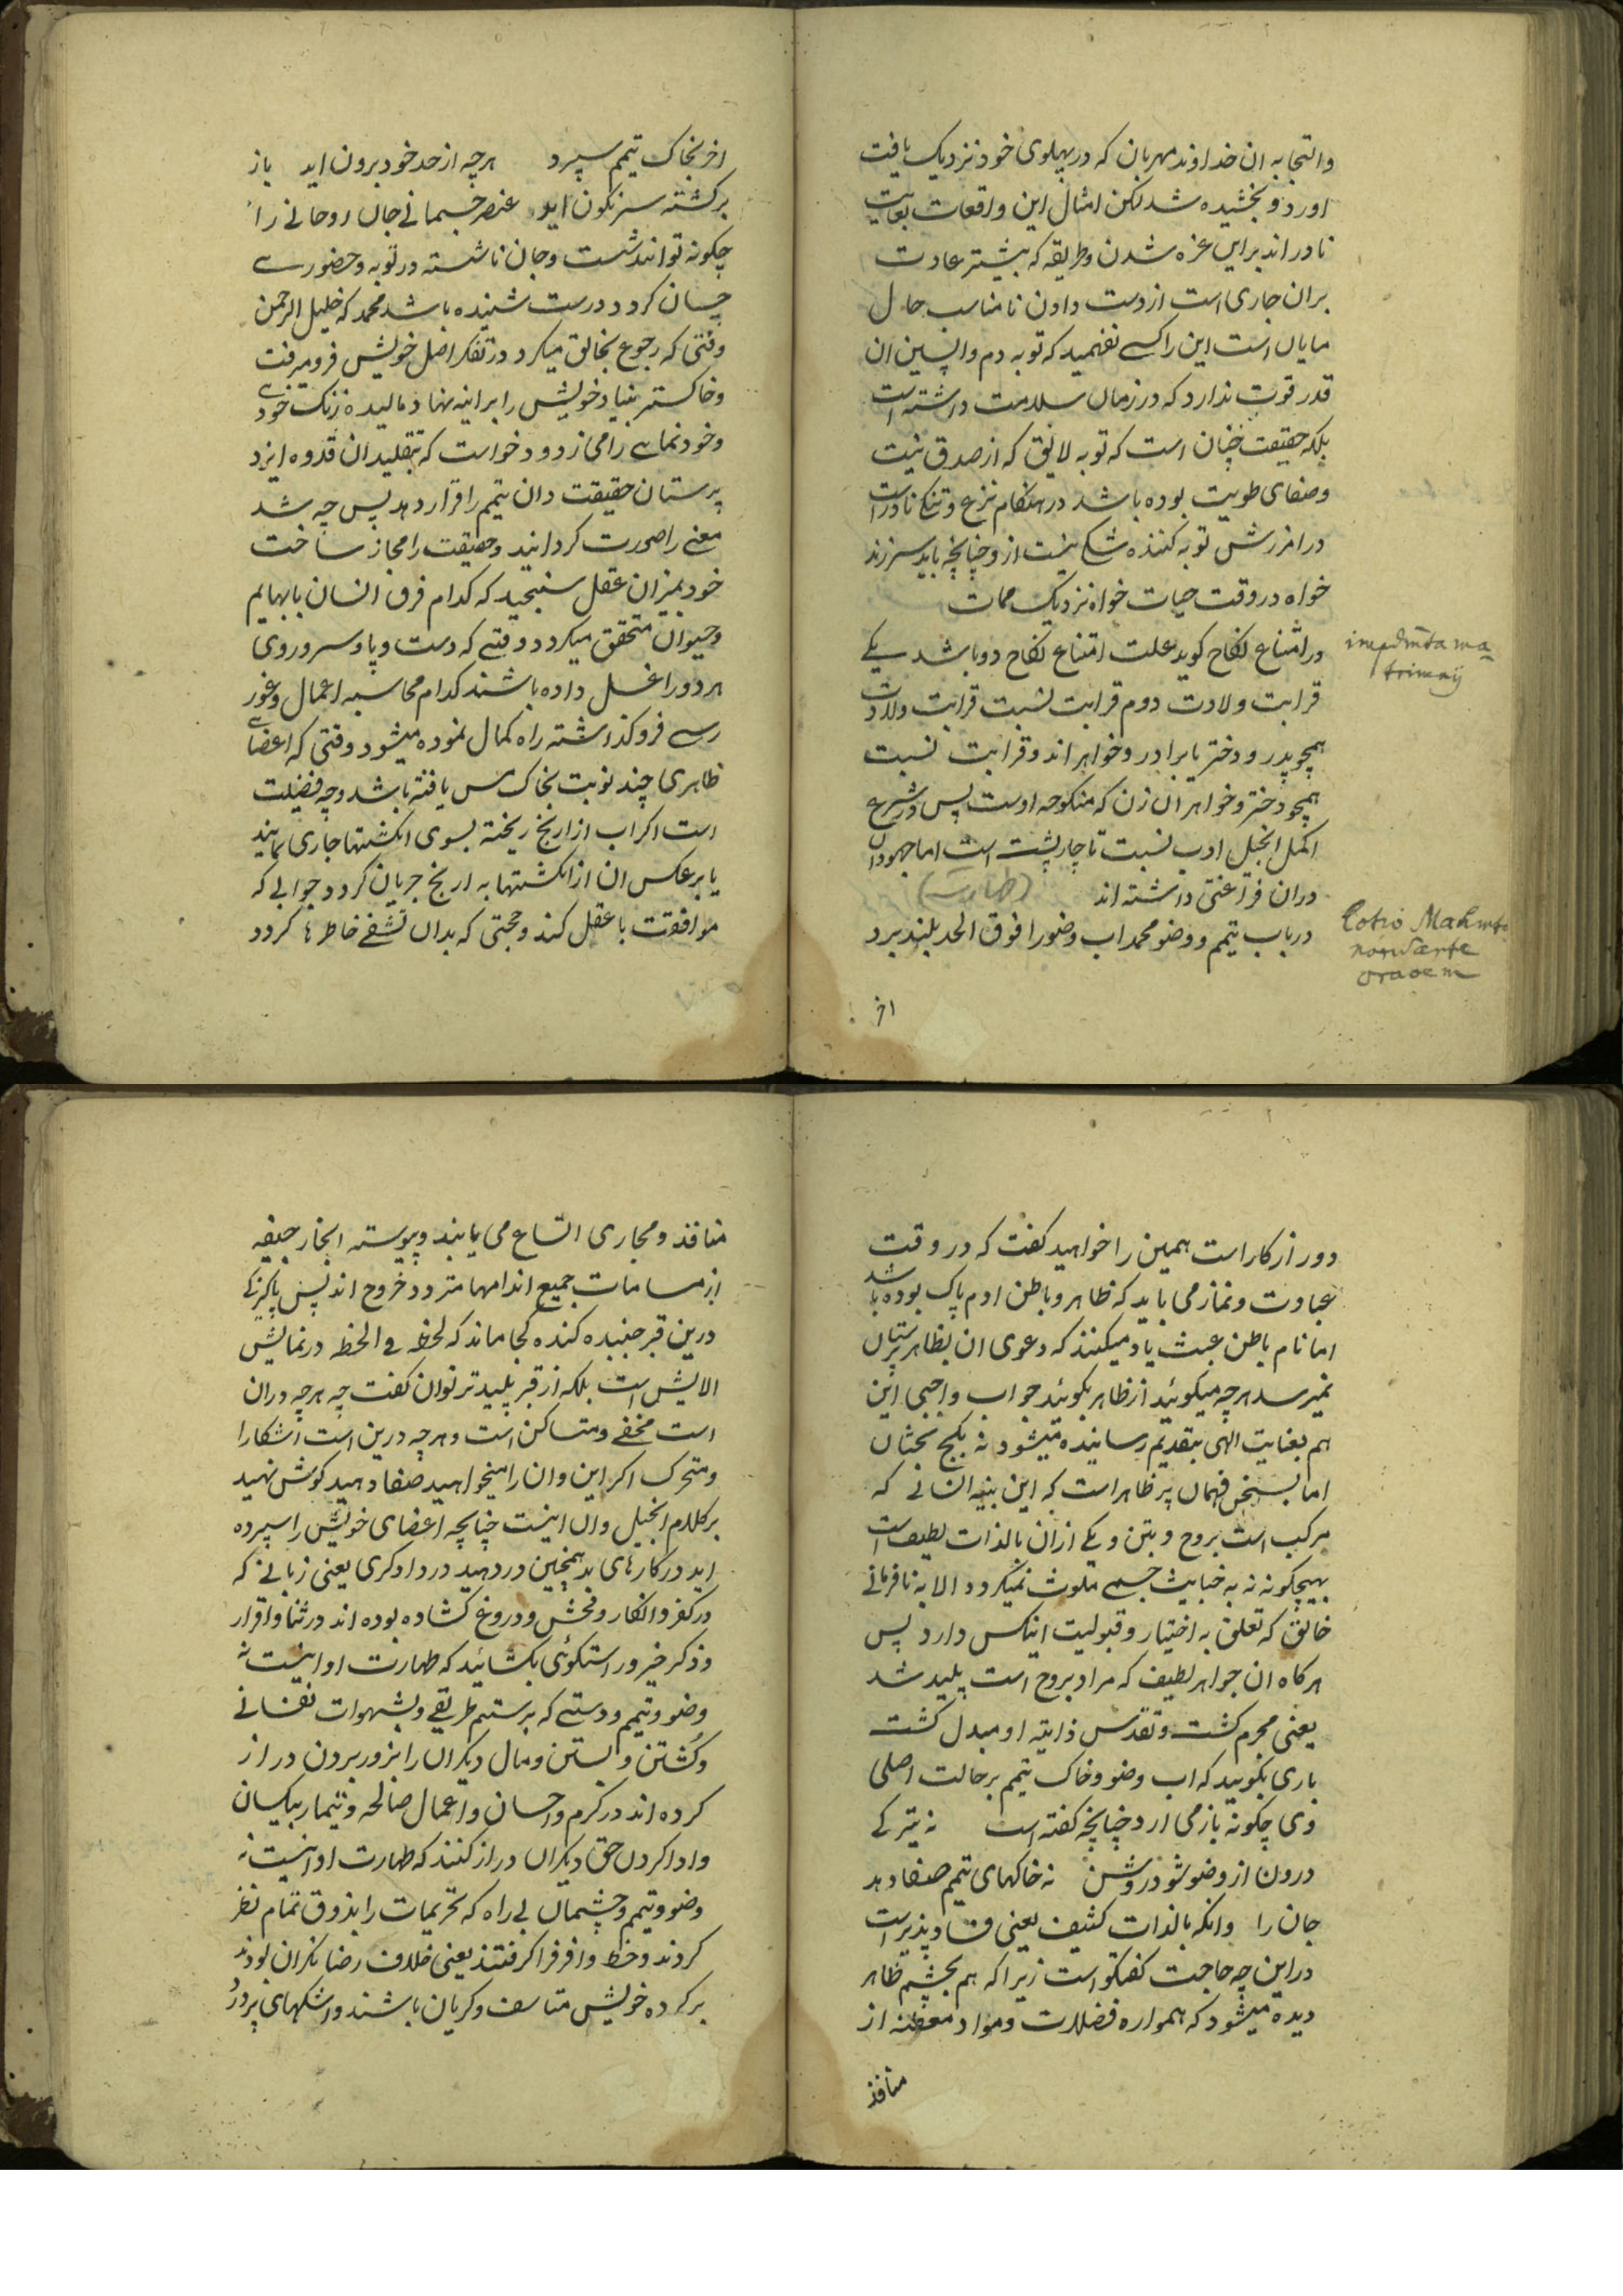 والتجا به ان خداوند مهربان که در پهلوی خود نزدیک یافت
اورد و بخشیده شد لکن امثال این واقعات بغایت
نادر اند براین غزه شدن و طریقه که بیشتر عادت
بران جاری است از دست دادن نامناسب حال
مایان است این را کسی نفهمید که توبه دم واپسین ان
قدر قوت ندارد که در زمان سلامت داشته است
بلکه حقیقت چنان است که توبه لایق که از صدق نیت
وصفای طویت بوده باشد در هنکام نزع و تنک نادر است
در امرزش توبه کننده شکی نیست از و چنانچه باید سر زند
خواه در وقت حیات خواه نزدیک ممات
در امتناع نکاح کوید علت امتناع نکاح دو باشد یکی
impdimta ma
trimonij
قرابت ولادت دوم قرابت نسبت قرابت ولادت
همچو پدر و دختر یا برادر و خواهر اند و قرابت نسبت
همچو دختر و خواهر ان زن که منکوحه اوست پس در شرع
اکمل انجیل ادب نسبت تا چار پشت است اما جهودان
دران فراغتی داشته اند (طهارت)
در باب تیمم و وضو محمد اب وضو را فوق الحد بلند برد
Lotio Mahmta
norũ ante
oraoem
اخر
اخر بخاک تیمم سپرد هرچه از حد خود برون اید باز
برکشته سرنکون اید عنصر جسمانی جان روحانی را
چکونه تواند شست و جان ناشسته در توبه و حضورے
چسان کردد درست شنیده باشد محمد که خلیل الرحمن
وقتی که رجوع بخالق میکرد در تفکر اصل خویش فرو میرفت
وخاکستر بنیاد خویش را براینه نهاد مالیده زنک خودے
وخود نمایے را می زدود خواست که بتقلید ان قدوه ایزد
پرستان حقیقت دان تیمم را قرار دهد پس چه شد
معنی را صورت کردانید و حقیقت را مجاز ساخت
خود بمیزان عقل سنجید که کدام فرق انسان با بهایم
وحیوان متحقق میکردد وقتے که دست و پا و سر و روی
هر دو را غسل داده باشند کدام محاسبه اعمال و غور
رسے فروکذاشته راه کمال نموده میشود وقتی که اعضاے
ظاهری چند نوبت بخاک مس یافته باشد و چه فضیلت
است اکر اب از ارنج ریخته بسوی انکشتها جاری نمایند
یا برعکس ان از انکشتها به ارنج جریان کردد جوابی که
موافقت با عقل کند و حجتی که بدان تشفے خاطرها کردد
دور از کار است همین را خواهید کفت که در وقت
عبادت و نماز می باید که ظاهر و باطن ادم پاک بوده باشد
اما نام باطن عبث یاد میکنند که دعوی ان بظاهر پرستان
نمیرسد هرچه میکوئید از ظاهر بکوئید جواب واجبی این
هم بعنایت الهی بتقدیم رسانیده میشود نه بکج بحثان
اما بسخن فهمان پر ظاهر است که این بنیه انسانی که
مرکب است بروح و بتن و یکے ازان بالذات لطیف است
بهیچکونه نه به خباثت جسمے ملوث نمیکردد الا به نافرمانے
خالق که تعلق به اختیار و قبولیت اینکس دارد پس
هرکاه ان جواهر لطیف که مراد بروح است پلید شد
یعنی مجرم کشت و تقدس ذاتیه او مبدل کشت
باری بکویید که اب وضو و خاک تیمم بر حالت اصلی
وی چکونه باز می ارد چنانچه کفته است نه تیرکے
درون از وضو شود روشن نه خاکهای تیمم صفا دهد
جان را وانکه بالذات کثیف یعنی فساد پذیر است
در این چه حاجت کفتکو است زیرا که هم بچشم ظاهر
دیده میشود که همواره فضلات و مواد معفنه از
منافذ
منافذ و مجاری اتساع می یابند و پیوسته ابخار جیفه
از مسامات جمیع اندامها متردد خروج اند پس پاکیزکے
درین قبر جنبیده کنده کجا ماند که لحظه فے الحظه در نمایش
الایش است بلکه از قبر پلید تر توان کفت چه هرچه دران
است مخفے و متساکن است و هرچه درین است اشکارا
ومتحرک اکر این وان را میخواهید صفا دهید کوش نهید
بر کلام انجیل وان اینست چنانچه اعضای خویش را سپرده
اید در کارهای بد همچنین در دهید در دادکری یعنی زبانے که
در کفر و انکار و فحش و دروغ کشاده بوده اند در ثنا و اقرار
وذکر خیر و راستکوئی بکشائید که طهارت او اینست نه
وضو و تیمم و دستے که بر ستم طریقے و بشهوات نفسانے
وکُشتن و بستن و مال دیکران را بزور بردن دراز
کرده اند در کرم و احسان و اعمال صالحه و تیمار بیکسان
وادا کردن حق دیکران دراز کنند که طهارت او اینست نه
وضو و تیمم و چشمان بے راه که تحریمات را بذوق تمام نظر
کردند و حظ وافر فرا کرفتند یعنی خلاف رضا نکران بودند
بر کرده خویش متاسف و کریان باشند و اشکهای پر درد